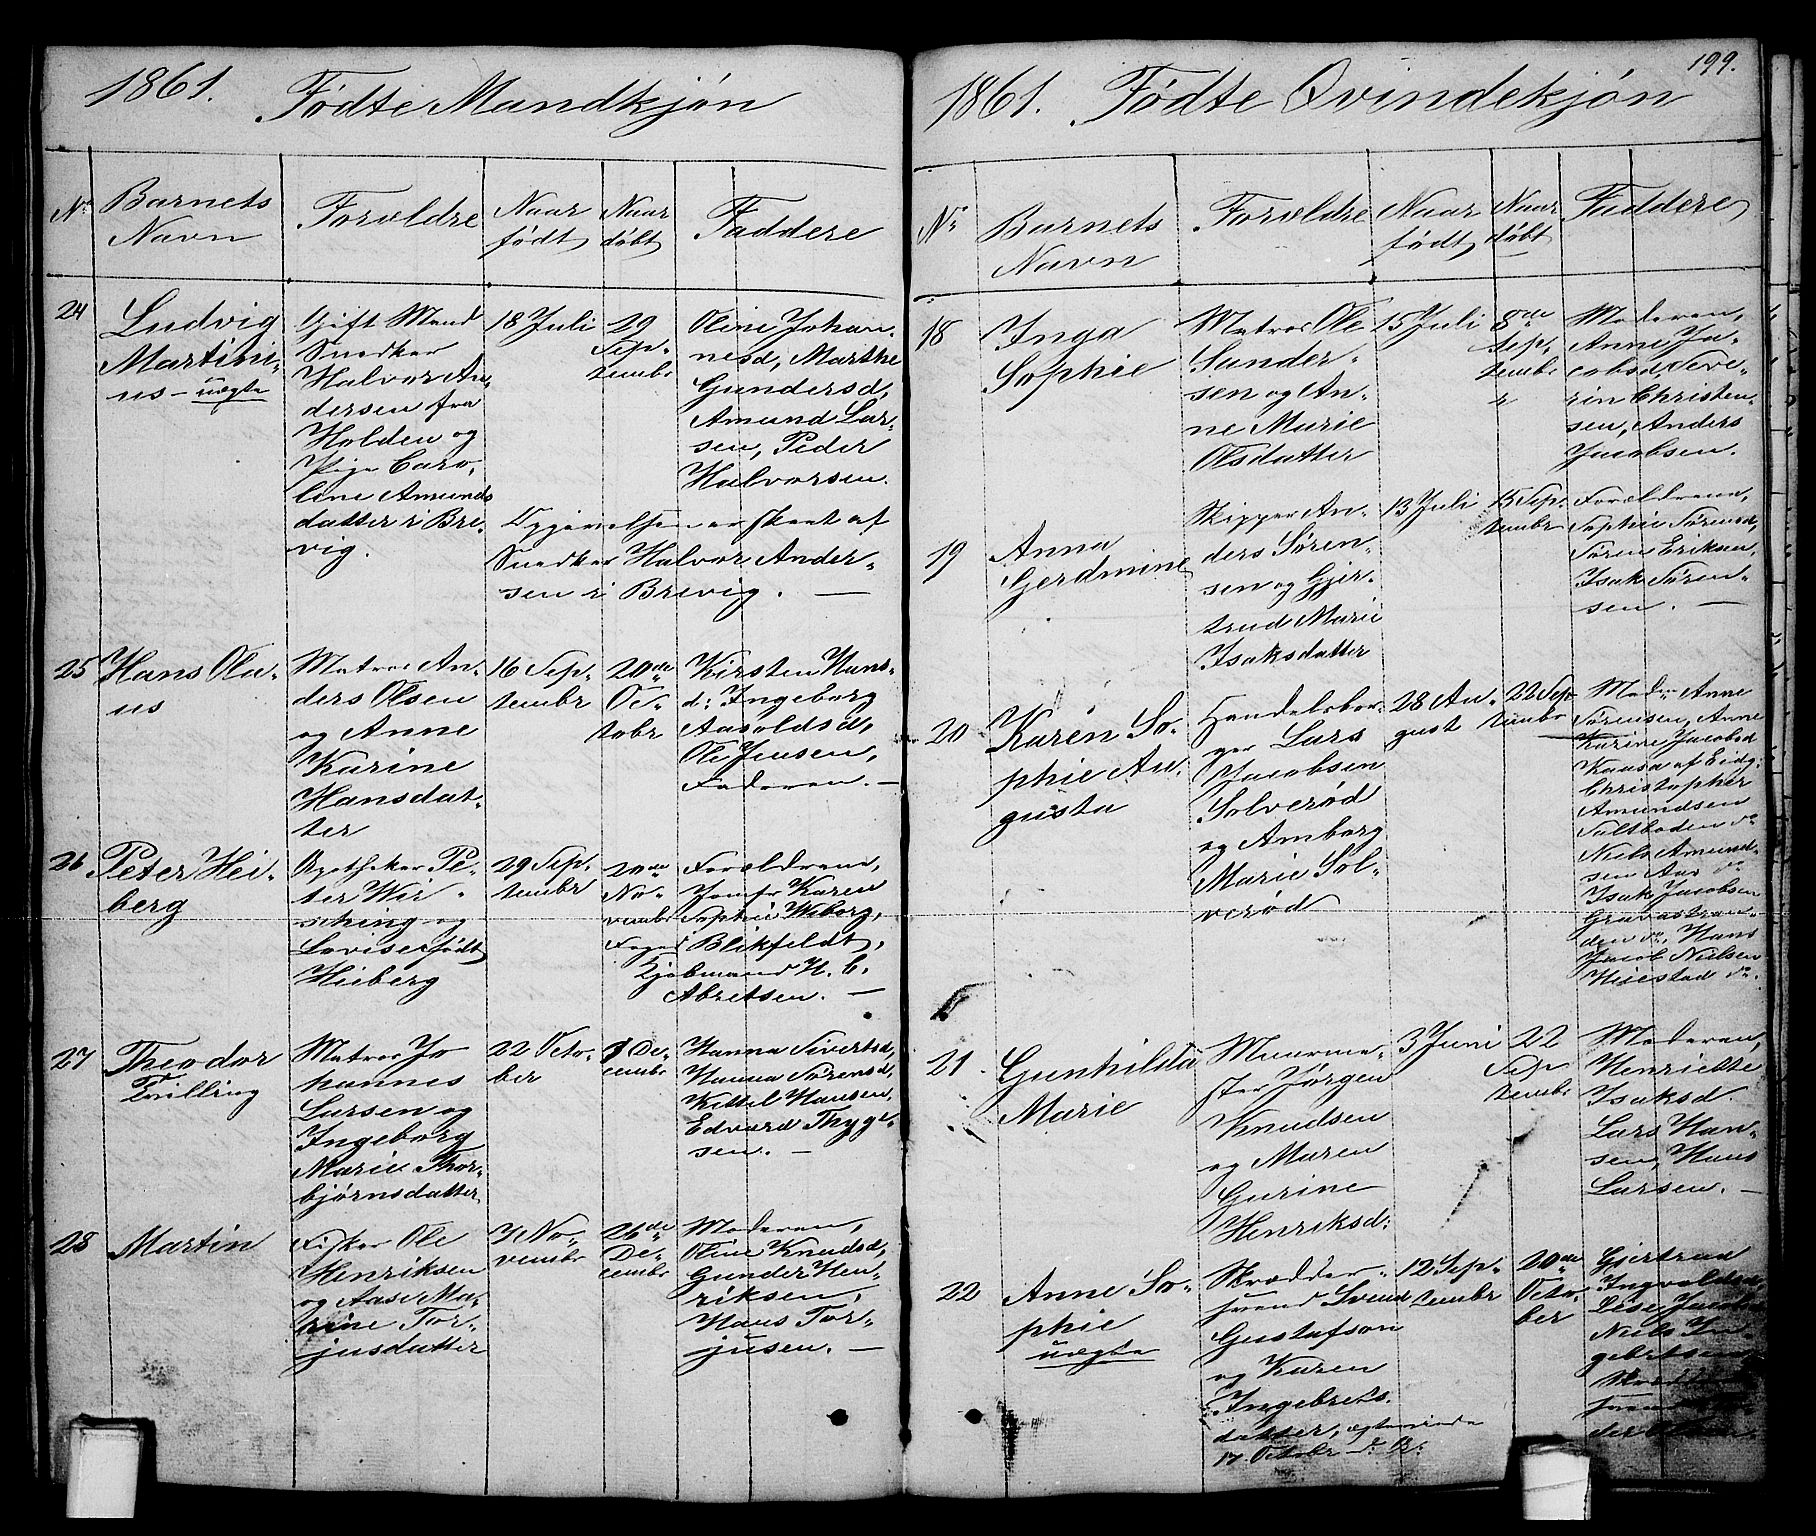 1861. Fødte Mandkjøn
No Barnets Navn
Forældre
Naar født
Naar døbt
Faddere
24
Ludvig
Martini-
us - uægte
Gift Mand
Snedker
Halvor An-
dersen fra
Holden og
Pige Caro-
line Amunds
datter i Bre-
vig.
18 Juli
29
Sep-
tembr
Oline Johan-
nesd, Marthe
Gundersd,
Amund Lar-
sen, Peder
Halvorsen.
er skeet af
Snedker Halvor Ander-
sen i Brevig. —
25
Hans Ola-
us
Matros An-
ders Olsen
og Anne
Karine
Hansdat-
ter
16 Sep-
tembr
20de
Oc-
tobr
Kirsten Hans-
d: Ingeborg
Aasoldsd,
Ole Jensen,
Faderen. —
26
Peter Hei-
berg
Apotheker Pe-
ter Wir-
sching og
Lovise født
Heiberg
29 Sep-
tembr
No-
vembr
Forældrene,
Jomfr Karen
Sophie Wiborg,
Foged Blikfeldt,
Kjøbmand H. C.
Abretsen. —
27
Theodor
Tvilling
Matros Jo
hannes
Larsen og
Ingeborg
Marie Thor-
bjørnsdatter
22 Octo-
ber
De-
cembr
Hanna Sivertsd,
Hanna Sørensd,
Kittel Hansen,
Edvard Thyge-
sen. —
28
Martin
Fisker Ole
Henriksen
og Aase Ma-
rine Tor-
jusdatter
No-
vembr
26de
De-
cembr
Moderen,
Oline Knudsd,
Gunder Hen-
riksen,
Hans Tor-
jusen. —
199.
1861. Fødte Qvindekjøn
Nr
Barnets
Navn
Forældre
Naar
født
Naar
døbt
Faddere
18
Inga
Sophie
Matros Ole
Gunder-
sen og An-
ne Marie
Olsdatter
15 Juli
8de
Sep-
tembr
Moderen,
Anne Ja-
cobsd, Seve-
rin Christen-
sen, Anders
Jacobsen.
19
Anna
Gjerdmine
Skipper An-
ders Søren-
sen og Gjer-
trud Marie
Isaksdatter
13 Juli
15 Sep-
tembr
Forældrene,
Sophie Sørensd,
Søren Eriksen,
Isak Søren-
sen. —
20
Karen So-
phie Au-
gusta
Handelsbor-
ger Lars
Jacobsen
Solverød
og Amborg
Marie Sol-
verød
28 Au-
gust
22 Sep-
tembr
Moder Anne
Sørensen, Anne
Karine Jacobsd
Kaasa af Eidg:
Christopher
Amundsen
Saltboden do
Niels Amund-
sen Aas do
Isak Jacobsen
Gravastran-
den do, Hans
Jacob Nielsen
Heiestad do.
21
Gunhilda
Marie
Muurme-
ster Jørgen
Knudsen
og Maren
Gurine
Henriksd:
3 Juni
22
Sep-
tembr
Moderen,
Henriette
Isaksd
Lars Han-
sen, Hans
Larsen. —
22
Anne So-
phie
uægte
Skrædder-
svend Svend
Gustafson
og Karen
Ingebrets-
datter, ægteviede
17 October
12 Sep-
tembr
20de
Octo-
ber
Gjertrud
Ingvoldsd,
Lise Jacobs
Niels In-
gebretsen